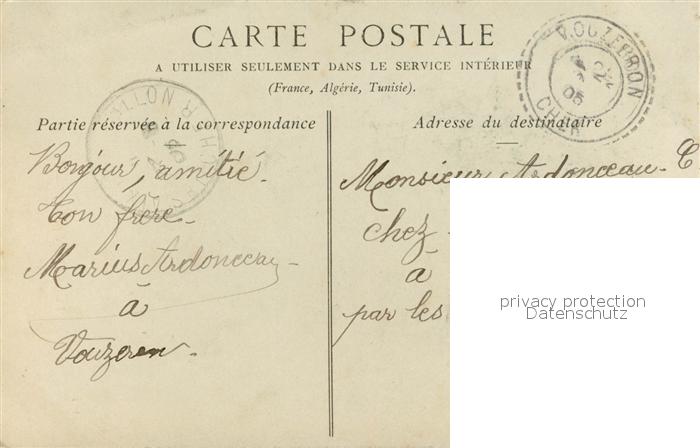 CARTE POSTALE
A UTILISER SEULEMENT DANS LE SERVICE INTÉRIEUR
(France, Algérie, Tunisie).
Partie réservée à la correspondance
Bonjour, amitié.
Ton frère
Marius Ardonceau
à
Vouzeron.
Adresse du destinataire
Monsieur Ardonceau
chez
à
par les
VOUZERON
05
CHER
privacy protection
Datenschutz